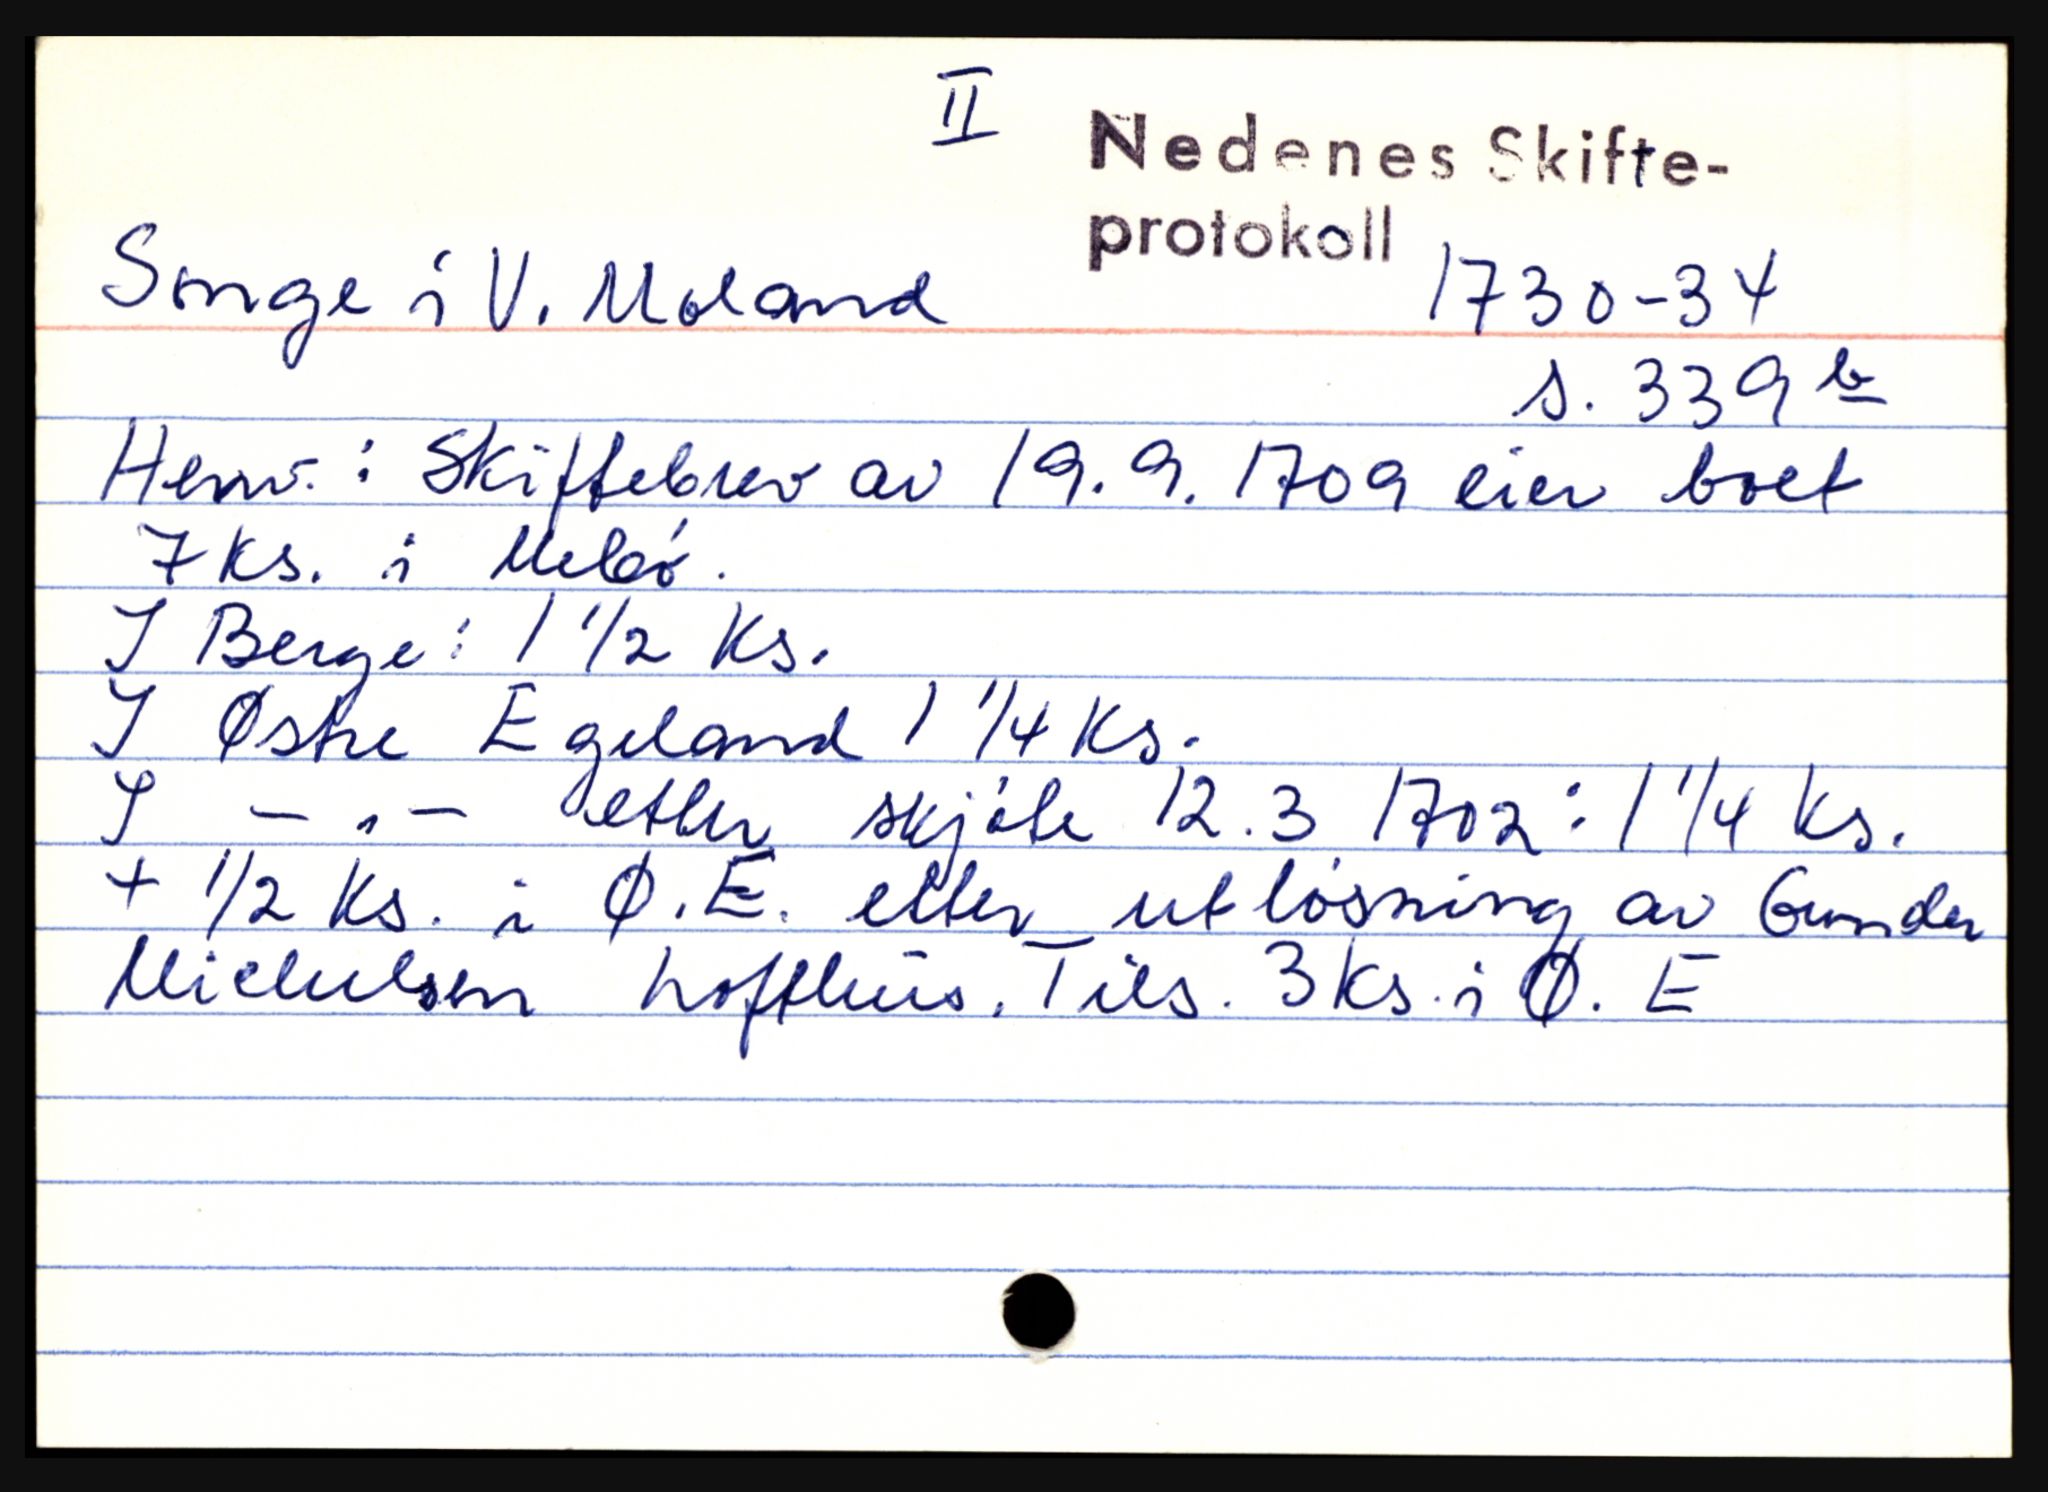 II
Nedenes Skifte-
protokoll
Songe i V. Moland 1730-34
s. 339 b
Henv.: Skiftebrev av 19.9.1709 eier boet
7 Ks. i Mebø.
I Berge: 1 1/2 Ks.
I Østre Egeland 1 1/4 Ks.
I — „ — etter skjøte 12.3 1702: 1 1/4 Ks.
+ 1/2 Ks. i Ø.E. etter utløsning av Gunder
Michelsen Lofthus. Tils. 3 Ks. i Ø. E